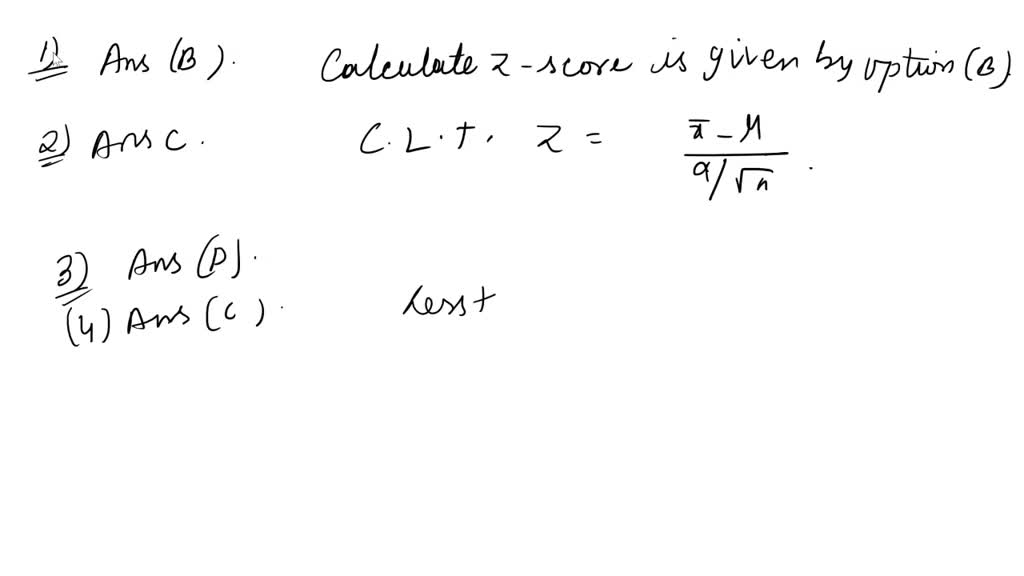 1) Ans (B). Calculate z-score is given by option (B)
2) Ans C. C.L.T. Z = x̄ - M / a/√n .
3) Ans (D).
(4) Ans (C). Less t